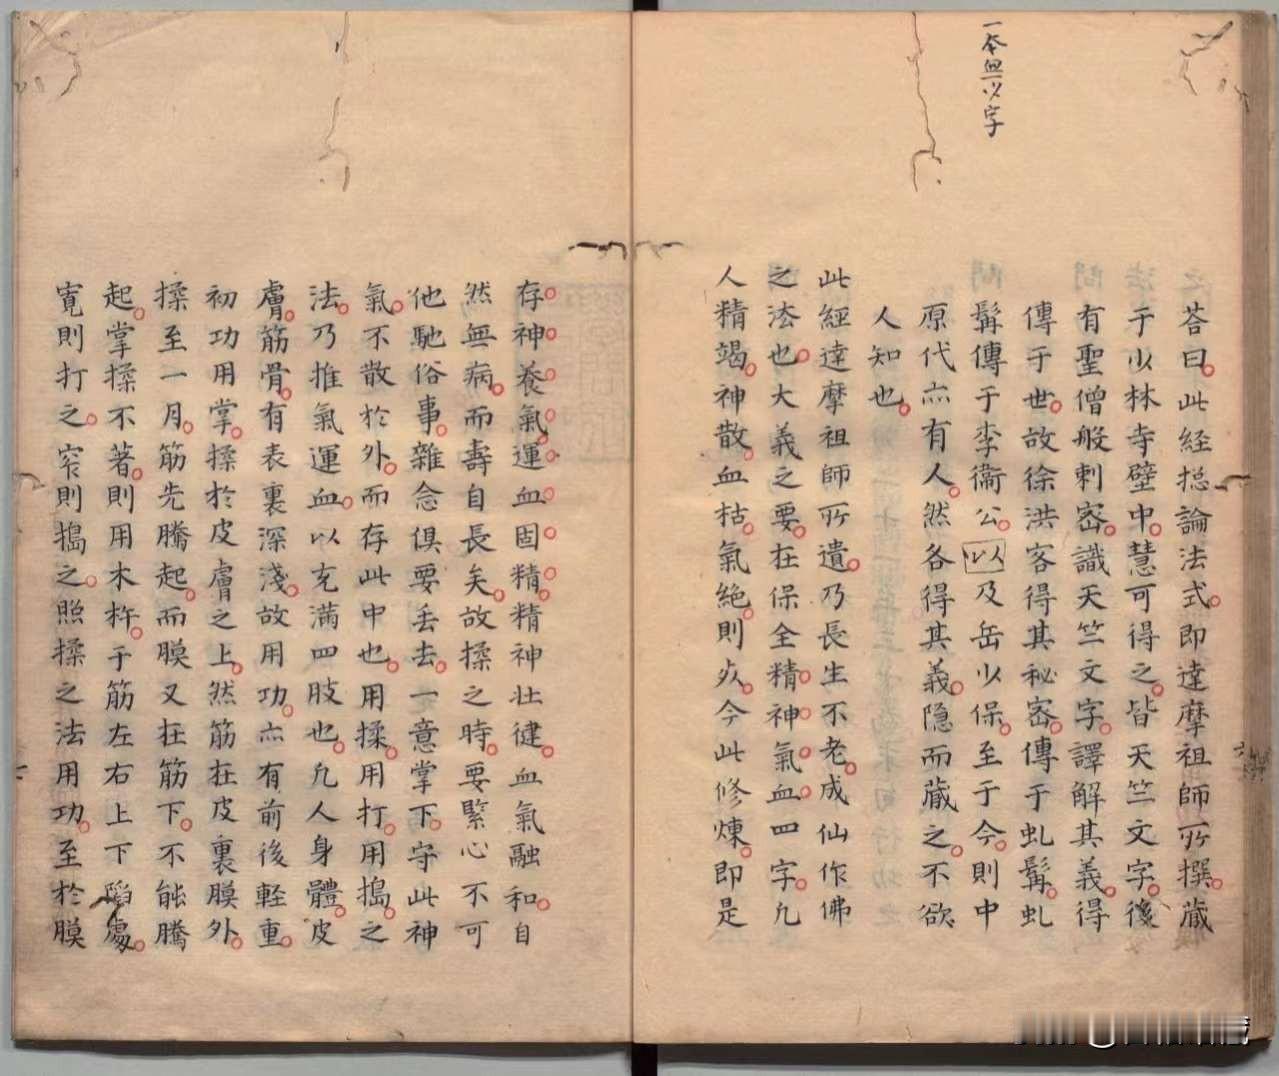 一本無以字
荅曰此経揔論法式即達摩祖師所撰蔵
于少林寺壁中慧可得之皆天竺文字後
有聖僧般刺宻識天竺文字譯解其義得
傳于世故徐洪客得其秘宻傳于虬髯虬
髯傳于李衛公以及岳少保至于今則中
原代亦有人然各得其義隐而蔵之不欲
人知也
此經達摩祖師所遺乃長生不老成仙作佛
之法也大義之要在保全精神氣血四字凡
人精竭神散血枯氣絶則死今此修煉即是
存神養氣運血固精精神壮健血氣融和自
然無病而壽自長矣故揉之時要緊心不可
他馳俗事雜念俱要丢去一意掌下守此神
氣不散於外而存此中也用揉用打用搗之
法乃推氣運血以充滿四肢也凡人身體皮
膚筋骨有表裏深淺故用功亦有前後軽重
初功用掌揉於皮膚之上然筋在皮裏膜外
揉至一月筋先騰起而膜又在筋下不能騰
起掌揉不著則用木杵于筋左右上下陷處
寛則打之窄則搗之照揉之法用功至於膜